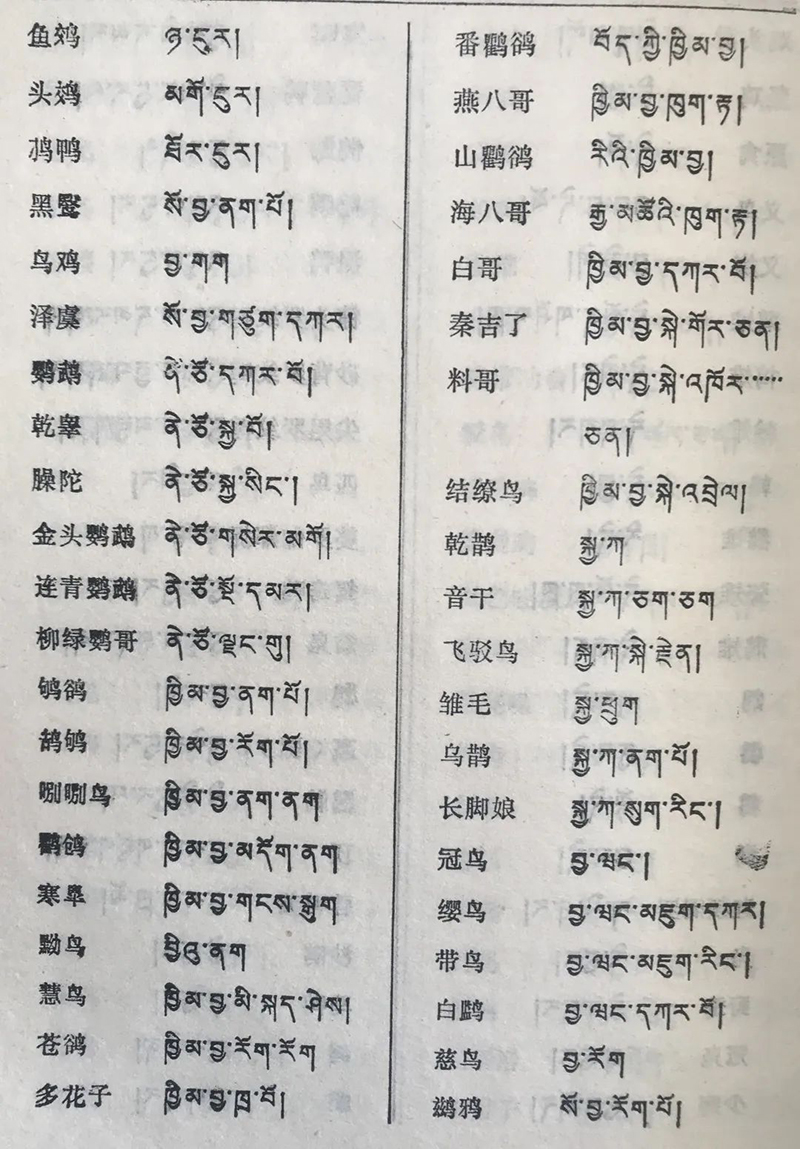 鱼鵁 ཉ་ངུར།
头鵁 མགོ་ངུར།
鸬鸭 ཐོར་ངུར།
黑鹥 སོ་བྱ་ནག་པོ།
鸟鸡 བྱ་གག
泽虞 སོ་བྱ་གཙུག་དཀར།
鹦鹉 ནེ་ཙོ་དཀར་པོ།
乾皋 ནེ་ཙོ་སྐྱ་བོ།
臊陀 ནེ་ཙོ་སྐྱ་སིང་།
金头鹦鹉 ནེ་ཙོ་གསེར་མགོ།
连青鹦鹉 ནེ་ཙོ་སྔོ་དམར།
柳绿鹦哥 ནེ་ཙོ་ལྗང་གུ།
鸲鹆 ཁྱིམ་བྱ་ནག་པོ།
鹄鸲 ཁྱིམ་བྱ་རོག་པོ།
唎唎鸟 ཁྱིམ་བྱ་ནག་ནག
鸜鹆 ཁྱིམ་བྱ་མདོག་ནག
寒皋 ཁྱིམ་བྱ་གངས་སྨུག
黝鸟 བྱིའུ་ནག
慧鸟 ཁྱིམ་བྱ་མི་སྐད་ཤེས།
苍鹆 ཁྱིམ་བྱ་རོག་རོག
多花子 ཁྱིམ་བྱ་ཁྲ་བོ།
番鸜鹆 བོད་ཀྱི་ཁྱིམ་བྱ།
燕八哥 ཁྱིམ་བྱ་ཁུག་རྟ།
山鸜鹆 རིའི་ཁྱིམ་བྱ།
海八哥 རྒྱ་མཚོའི་ཁུག་རྟ།
白哥 ཁྱིམ་བྱ་དཀར་པོ།
秦吉了 ཁྱིམ་བྱ་སྐེ་གོར་ཅན།
料哥 ཁྱིམ་བྱ་སྐེ་འཁོར་……
ཅན།
结缭鸟 ཁྱིམ་བྱ་སྐེ་འབྲེལ།
乾鹊 སྐྱ་ཀ
音干 སྐྱ་ཀ་ཅག་ཅག
飞驳鸟 སྐྱ་ཀ་སྐེ་རྗེན།
雏毛 སྐྱ་ཕྲུག
乌鹊 སྐྱ་ཀ་ནག་པོ།
长脚娘 སྐྱ་ཀ་སུག་རིང་།
冠鸟 བྱ་ལྷང་།
缨鸟 བྱ་ལྷང་མཇུག་དཀར།
带鸟 བྱ་ལྷང་མཇུག་རིང་།
白鹇 བྱ་ལྷང་དཀར་པོ།
慈鸟 བྱ་རོག
鹚鸦 སོ་བྱ་རོག་པོ།